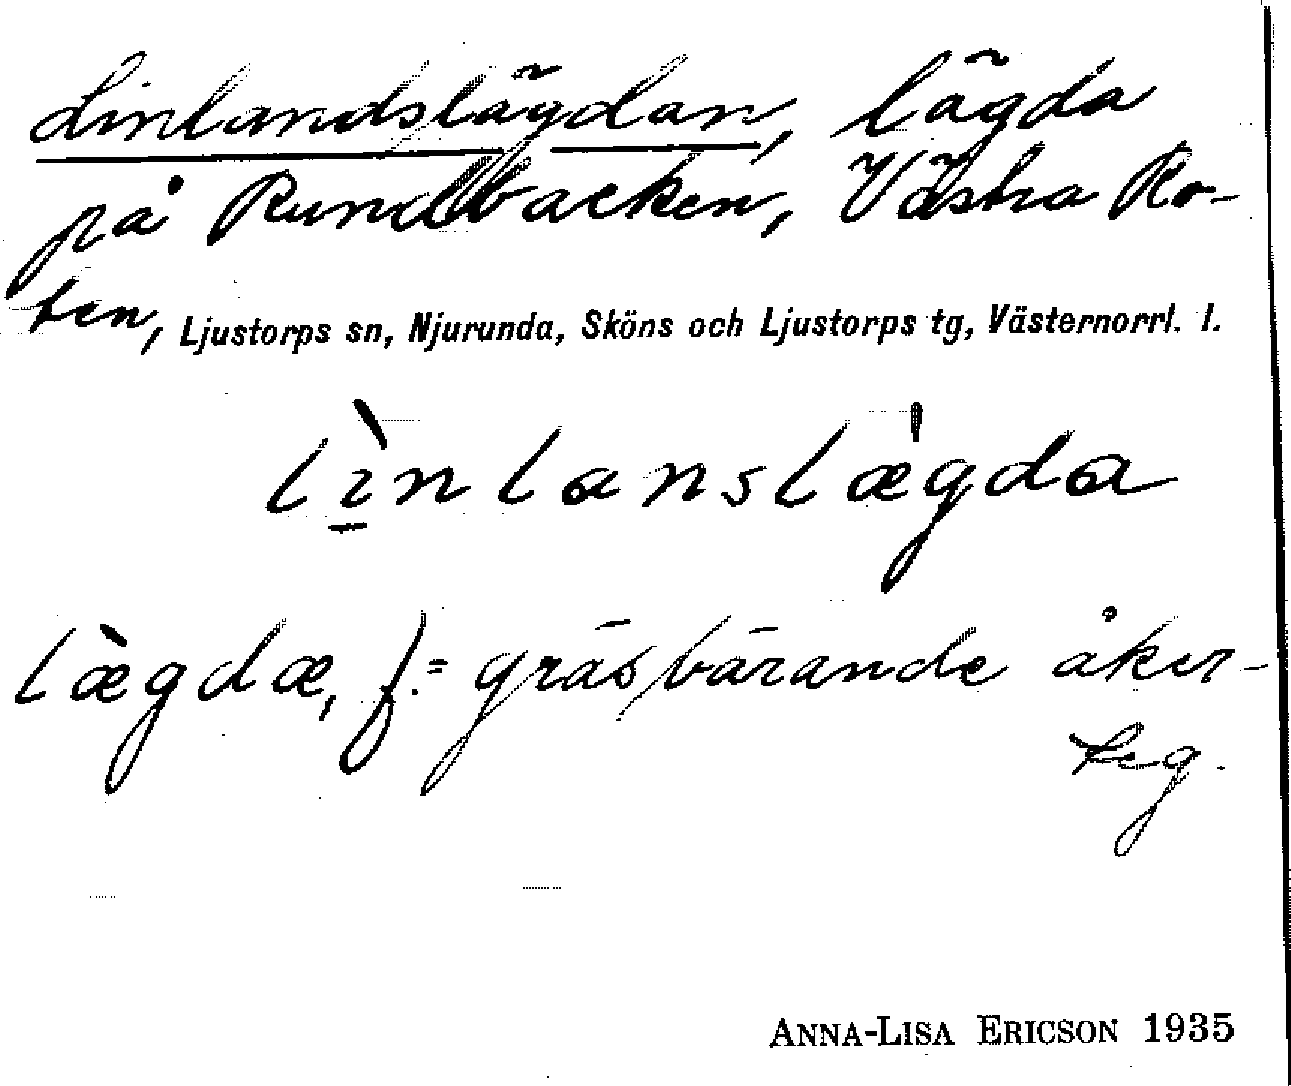 Linlandslägdan, lägda
på Rundbacken, Västra Ro-
ten, Ljustorps sn, Njurunda, Sköns och Ljustorps tg, Västernorrl. l.
lı̱̀nlanslæ̍gda
læ̀gdæ, f.= gräsbärande åker-
teg.
ANNA-LISA ERICSON 1935